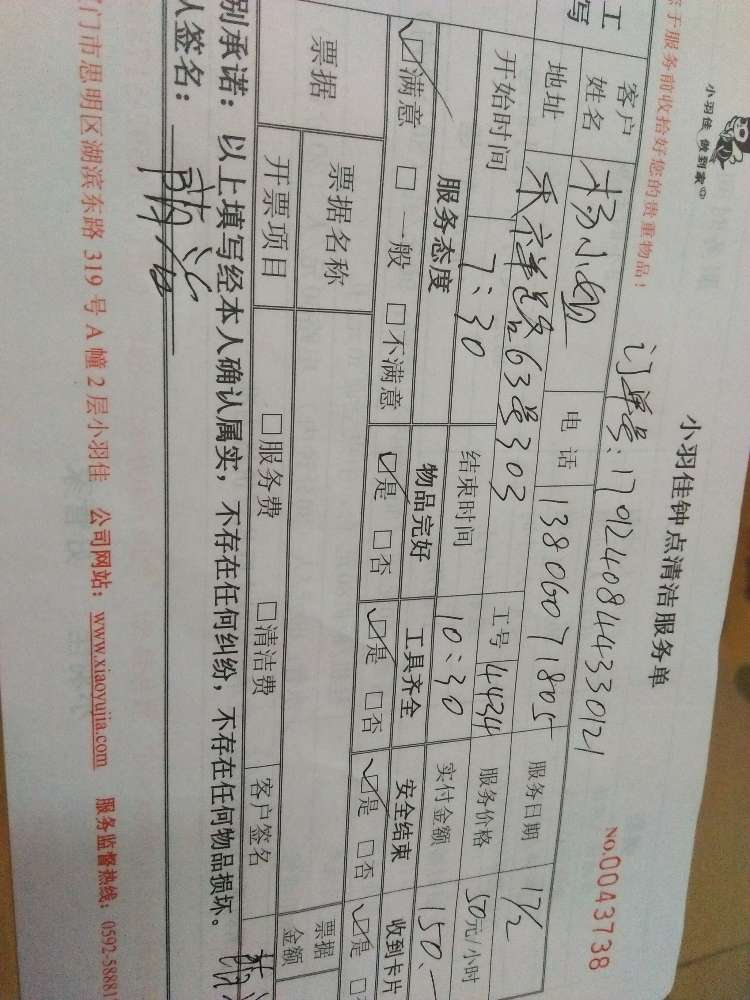 小羽佳 做到家
小羽佳钟点清洁服务单
NO.0043738
于服务前收拾好您的贵重物品!
订单号:1701240844330121
客户姓名 杨小姐 电话 13806071805 服务日期 17/2
地址 禾祥路63号303 工号 4434 服务价格 50元/小时
开始时间 7:30 结束时间 10:30 实付金额 150.—
服务态度 物品完好 工具齐全 安全结束 收到卡片
☑满意 □一般 □不满意 ☑是 □否 ☑是 □否 ☑是 □否 ☑是
票据 票据名称 票据金额
开票项目 □服务费 □清洁费 客户签名
别承诺:以上填写经本人确认属实,不存在任何纠纷,不存在任何物品损坏。
人签名:
门市思明区湖滨东路 319 号 A 幢 2 层小羽佳 公司网站:www.xiaoyujia.com 服务监督热线:0592-58881